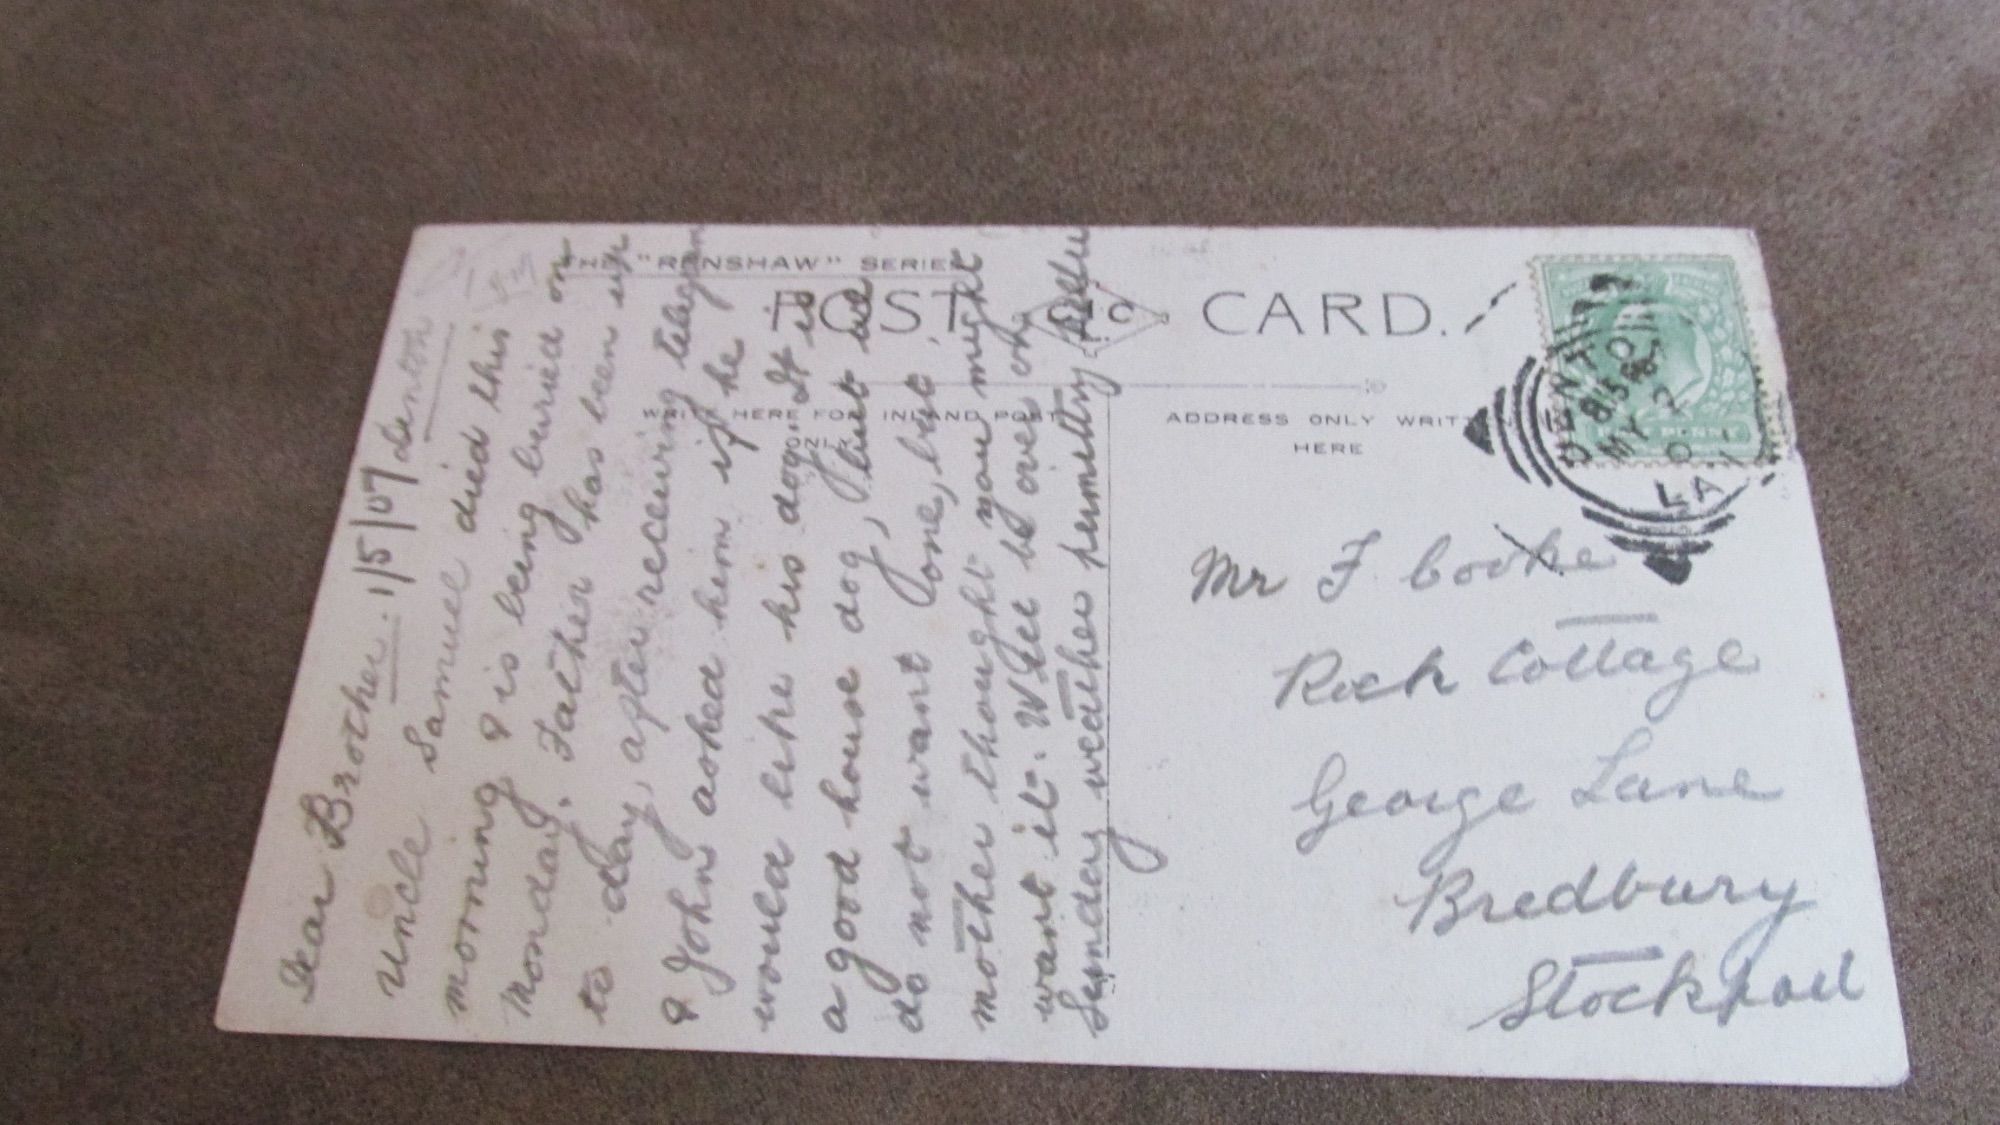 THE "RENSHAW" SERIES
POST CARD.
WRITE HERE FOR INLAND POSTAGE
ONLY
ADDRESS ONLY WRITTEN
HERE
Denton
1/5/07
Dear Brother.
Uncle Samuel died this
morning & is being buried on
Monday. Father has been up
to day, after receiving telegram
& John asked him if he
would like his dog, It is
a good house dog, but we
do not want one, but
mother thought you might
want it. Will be over on
Sunday weather permitting
Mr F. Cooke
Rock Cottage
George Lane
Bredbury
Stockport
DENTON
8/15 PM
MY
07
PENNY